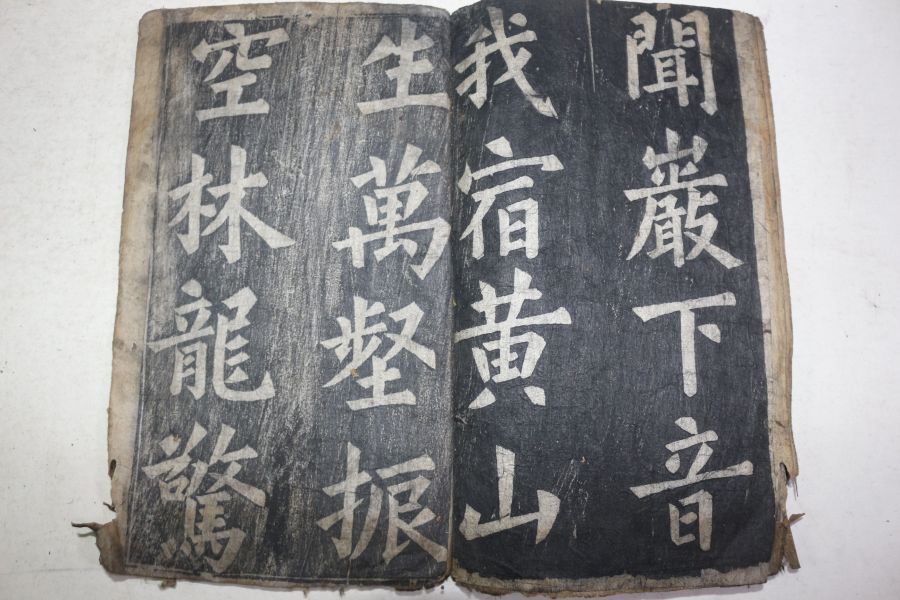 聞巖下音
我宿黄山
生萬壑振
空林龍驚